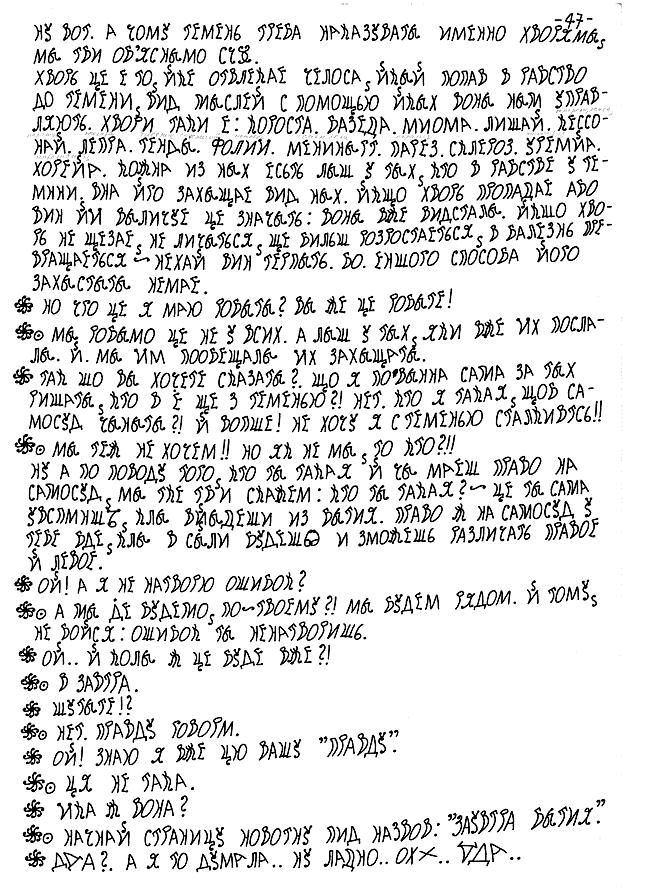 -47-
НУ ВОТ. А ЧОМУ ТЕМЕНЬ ТРЕБА НАКАЗУВАТЫ ИМЕННО ХВОРЯМЫ,
МЫ ТБИ ОБ'ЯСНЫМО
ХВОРЬ ЦЕ Е ТО, ЙКЕ ОТВЛЕКАЕ ЧЕЛОСА, ЙКЫЙ ПОПАВ В РАБСТВО
ДО ТЕМЕНИ, ВИД МЫСЛЕЙ С ПОМОЩЬЮ ЙКЫХ ВОНА НЫМ УПРАВ-
ЛЯЮТЬ. ХВОРИ ТАКИ Е: КОРОСТА. БАЗЕДА. МИОМА. ЛИШАЙ. КЕССО-
НАЙ. ЛЕПРА. ГЕНДЫ. ФОЛИИ. МЕНИНЫТ. ПАРЕЗ. СКЛЕРОЗ. УРЕМИЯ.
ХОРЕЙА. КОЖНА ИЗ НЫХ ЕСТЬ ЛЫШ У ТЫХ, КТО В РАБСТВЕ У ТЕ-
МИНИ, ВНА ЙГО ЗАХЫЩАЕ ВИД НЫХ. ЙКЩО ХВОРЬ ПРОПАДАЕ АБО
ВИН ЙИ ВЫЛИЧУЕ ЦЕ ЗНАЧЫТЬ: ВОНА ВЖЕ ВИДСТАЛЫ. ЙКЩО ХВО-
РЬ НЕ ЩЕЗАЕ, НЕ ЛИЧЫТЬСЯ, ЩЕ БИЛЬШ РОЗРОСТАЕТЬСЯ, В БАЛЕЗНЬ ПРЕ-
ВРАЩАЕТЬСЯ ~ НЕХАЙ ВИН ТЕРПЫТЬ. БО. ЕНШОГО СПОСОБА ЙОГО
ЗАХЫСТЫТЫ НЕМАЕ.
НО ЧТО ЦЕ Я МАЮ РОБЫТЫ? ВЫ ЖЕ ЦЕ РОБЫТЕ!
МЫ, РОБЫМО ЦЕ НЕ У ВСИХ. А ЛЫШ У ТЫХ, ЯКИ ВЖЕ ИХ ПОСЛА-
ЛЫ. Й. МЫ ИМ ПООБЕЩАЛЫ ИХ ЗАХЫЩАТЫ.
ТАК ШО ВЫ ХОЧЕТЕ СКАЗАТЫ?. ЩО Я ПОВЫННА САМА ЗА ТЫХ
РИШАТЫ, КТО В Е ЩЕ З ТЕМЕНЬЮ?! НЕТ. КТО Я ТАКАЯ, ЩОБ СА-
МОСУД ЧЫНЫТЫ?! Й ВОПШЕ! НЕ ХОЧУ Я С ТЕМЕНЬЮ СТАЛКИВТСЬ!!
МЫ ТЕЖ НЕ ХОЧЕМ!! НО ЯК НЕ МЫ, ТО КТО?!!
НУ А ПО ПОВОДУ ТОГО, КТО ТЫ ТАКАЯ Й ЧЫ МАЕШ ПРАВО НА
САМОСУД, МЫ ТКЕ ТБИ СКАЖЕМ: КТО ТЫ ТАКАЯ? ~ ЦЕ ТЫ САМА
УВСПМНЩ, КЛЫ ВЫЙДЕШИ ИЗ БЫТИЯ. ПРАВО Ж НА САМОСУД У
ТЕБЕ БДЕ, КЛЫ В СЫЛИ БУДЕШ И ЗМОЖЕШЬ РАЗЛИЧАТЬ ПРАВОЕ
Й ЛЕВОЕ.
ОЙ! А Я НЕ НАТВОРЮ ОШИБОК?
А МЫ ДЕ БУДЕМО, ПО~ТВОЕМУ?! МЫ БУДЕМ РЯДОМ. Й ТОМУ,
НЕ БОЙСЯ: ОШИБОК ТЫ НЕНАТВОРИШЬ.
ОЙ.. Й КОЛЫ Ж ЦЕ БУДЕ ВЖЕ?!
В ЗАВТРА.
ШУТЫТЕ!?
НЕТ. ПРАВДУ ГОВОРМ.
ОЙ! ЗНАЮ Я ВЖЕ ЦЮ ВАШУ "ПРАВДУ".
ЦЯ НЕ ТАКА.
ЙКА Ж ВОНА?
НАЧНАЙ СТРАНИЦУ НОВОТНУ ПИД НАЗВОВ: "ЗАУВТРА БЫТИЯ".
ДРА?. А Я ТО ДУМАЛА.. НУ ЛАДНО.. ОХ.. БДА..